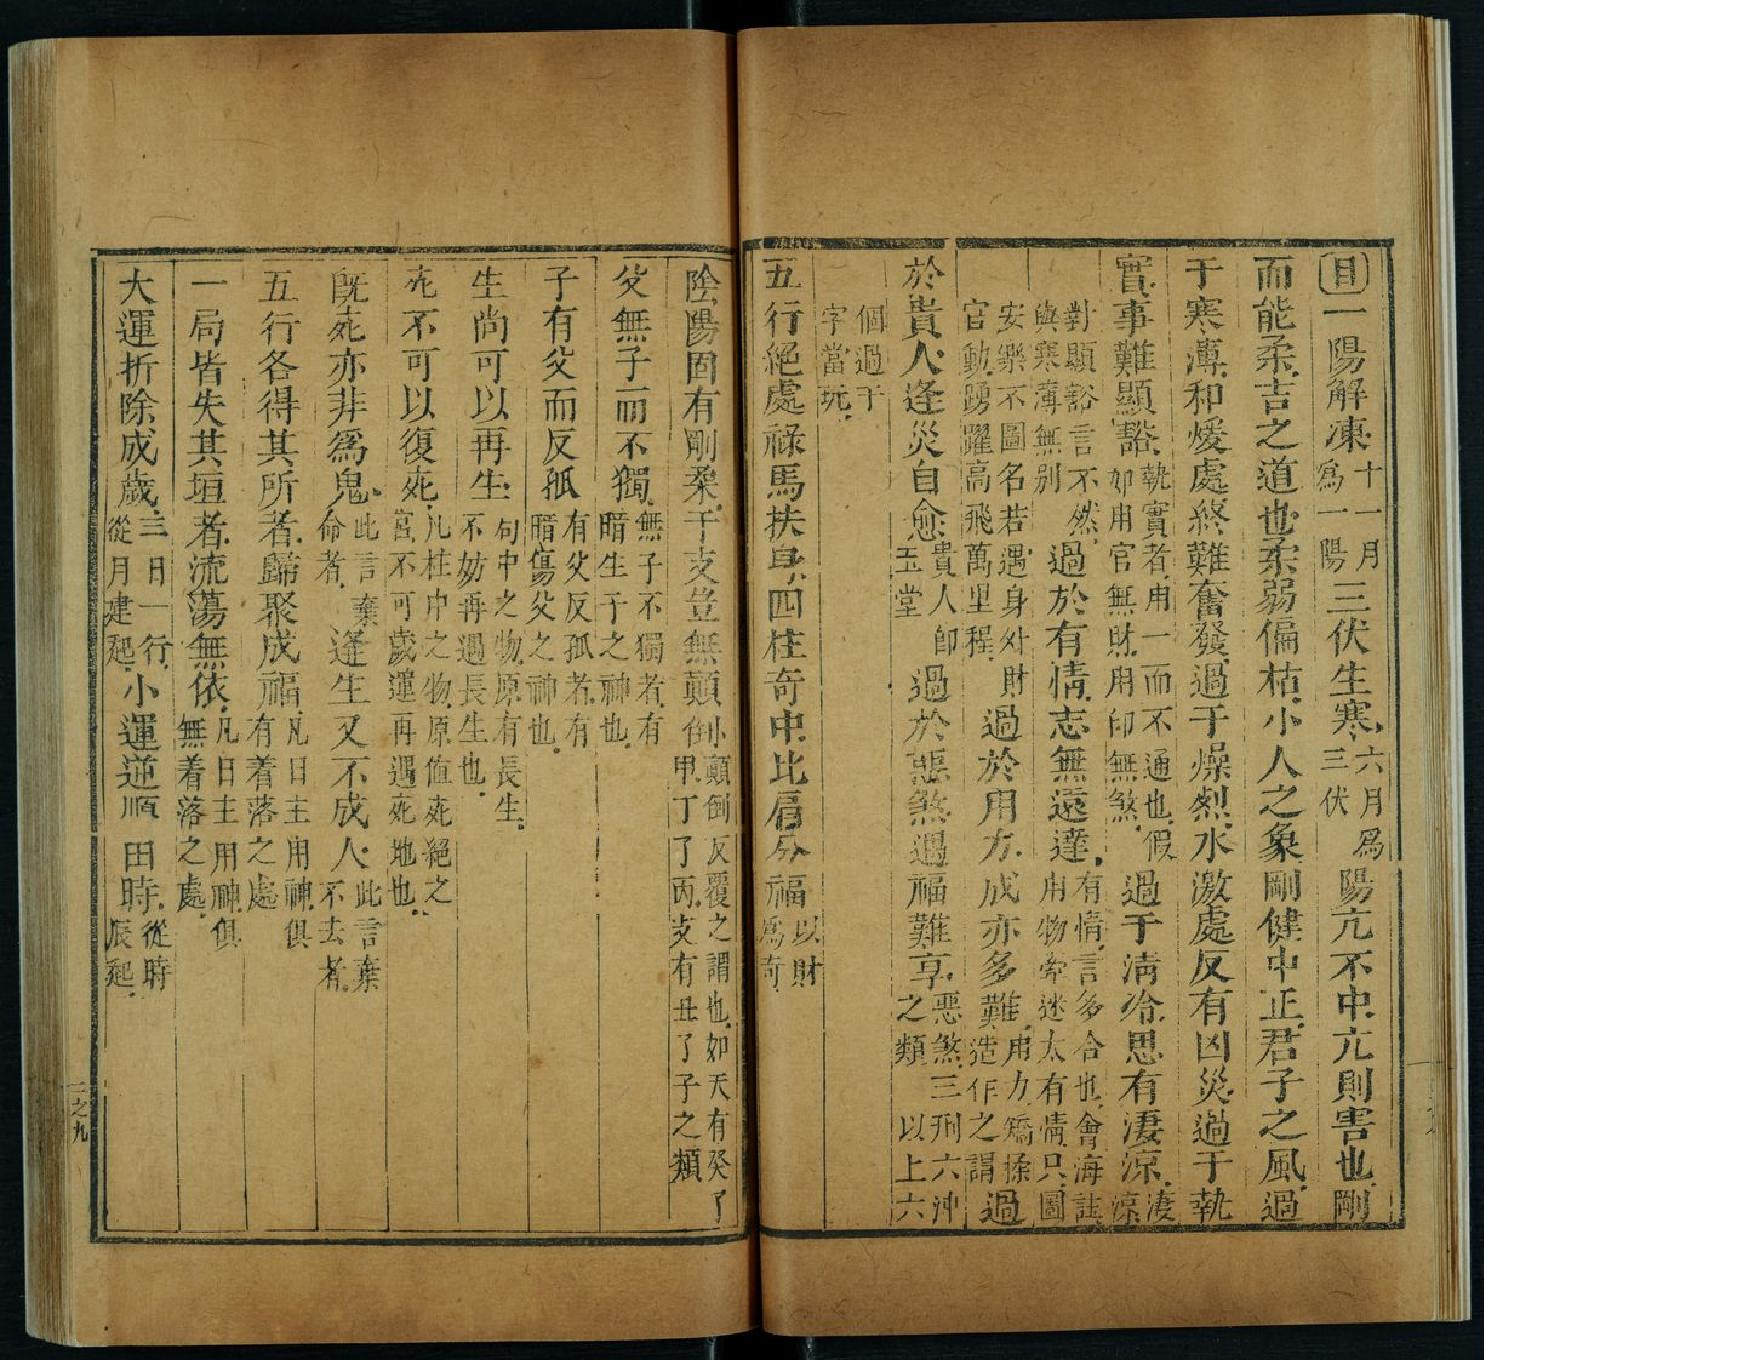 目一陽解凍十一月爲一陽三伏生寒六月爲三伏陽亢不中亢則害也剛
而能柔吉之道也柔弱偏枯小人之象剛健中正君子之風過
于寒薄和煖處終難奮發過于燥烈水激處反有凶災過于執
實事難顯豁執實者用一而不通也假如用官無財用印無煞過于清冷思有凄涼凄涼
對顯豁言不然與寒薄無別過於有情志無遠達有情言多合也會海誌用物牽迷太有情只圖
安樂不圖名若遇身外財官動踴躍高飛萬里程過於用力成亦多難用力矯揉造作之謂過
於貴人逢災自愈貴人卽玉堂過於惡煞遇福難享惡煞三刑六沖之類以上六
個過于字當玩
五行絕處祿馬扶身四柱奇中比肩分福以財爲奇
陰陽固有剛柔干支豈無顛倒顛倒反覆之謂也如天有癸了甲丁了丙支有丑了子之類
父無子而不獨無子不獨者有暗生于之神也
子有父而反孤有父反孤者有暗傷父之神也
生尚可以再生句中之物原有長生不妨再遇長生也
死不可以復死凡柱中之物原值死絕之宮不可歲運再遇死地也
既死亦非爲鬼此言棄命者逢生又不成人此言棄不去者
五行各得其所者歸聚成福凡日主用神俱有着落之處
一局皆失其垣者流蕩無依凡日主用神俱無着落之處
大運折除成歲三日一行從月建起小運逆順由時從時辰起
二之九